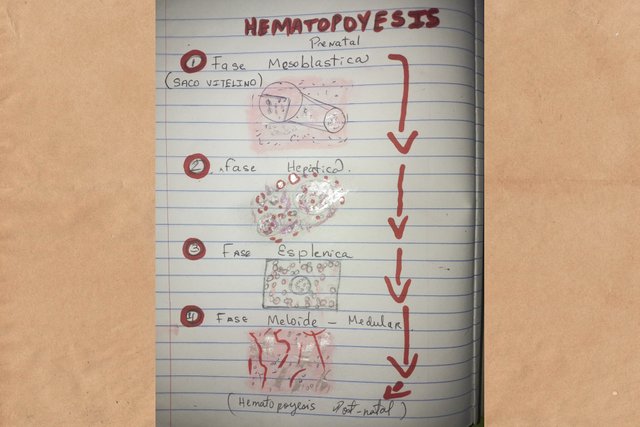 HEMATOPOYESIS
Prenatal
1 Fase Mesoblastica
(SACO VITELINO)
2 Fase Hepática.
3 FASE Esplenica
4 FASE Meloide - Medular
(Hematopoyesis Post-natal)